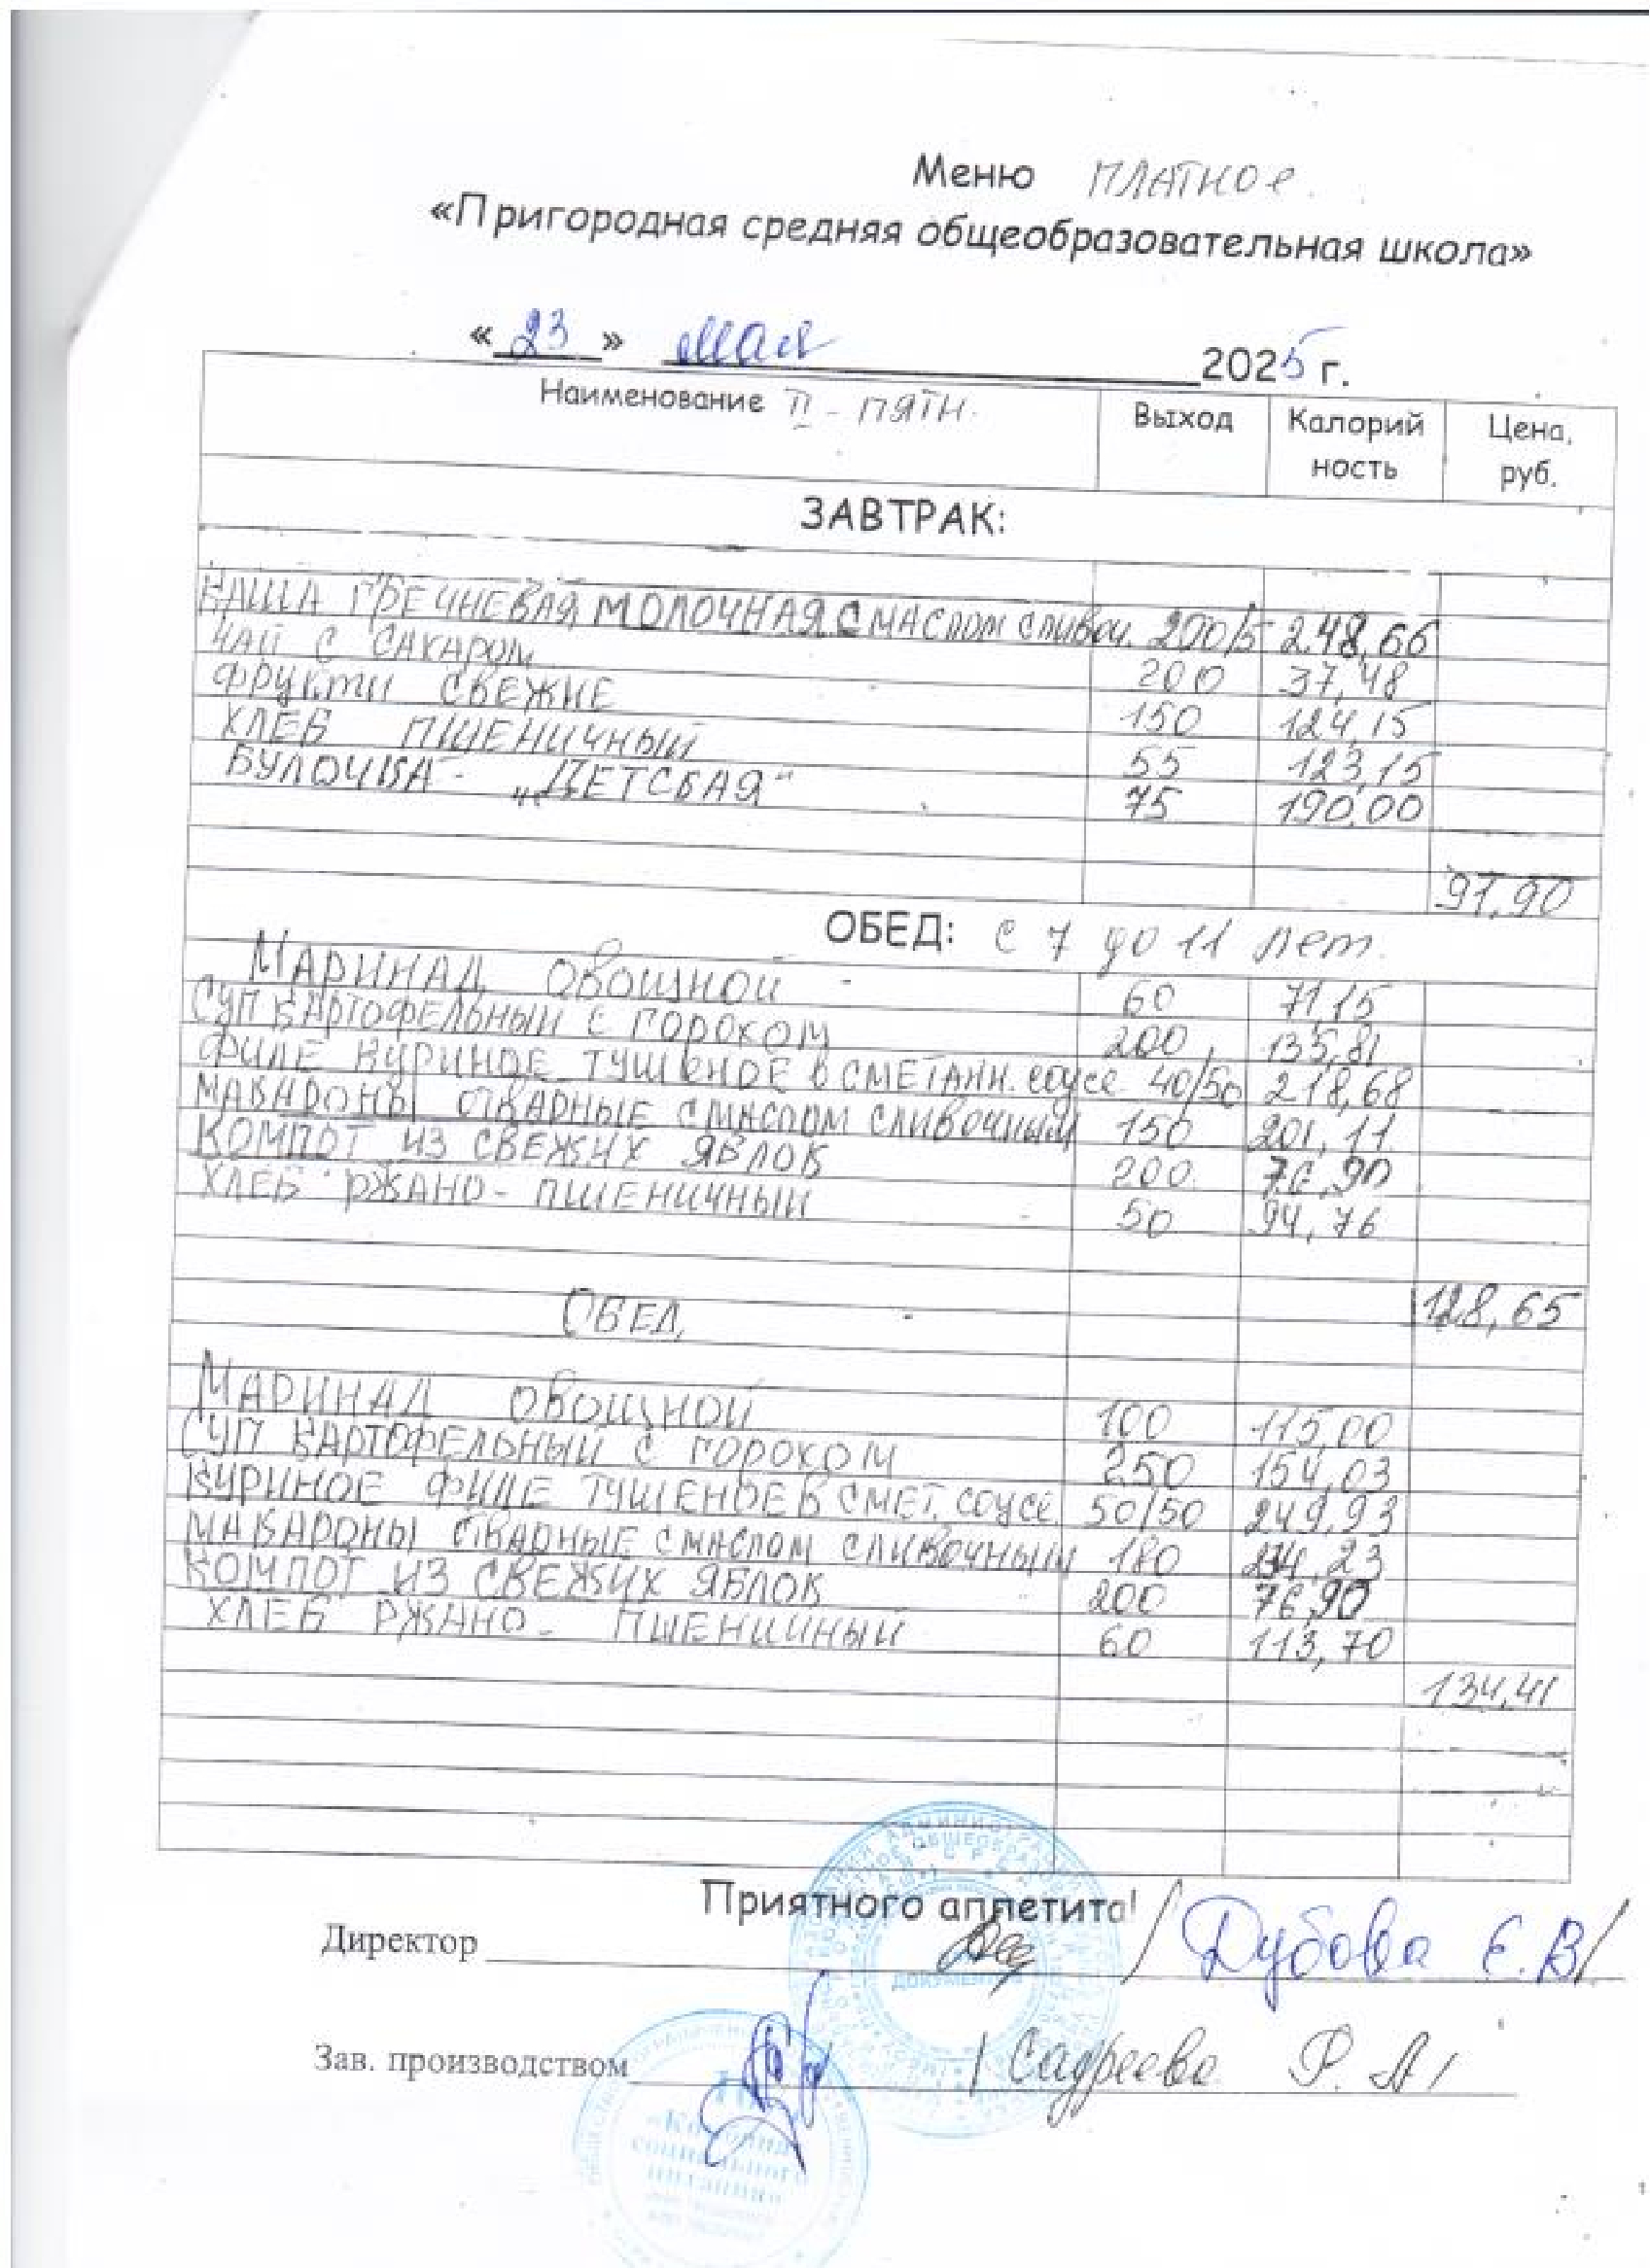 Меню платное.
«Пригородная средняя общеобразовательная школа»
«23» мая 2025 г.
Наименование II - пятн. Выход Калорий Цена,
ность руб.
ЗАВТРАК:
КАША ГРЕЧНЕВАЯ МОЛОЧНАЯ С МАСЛОМ СЛИВОЧ. 200/5 248,66
ЧАЙ С САХАРОМ 200 37,48
ФРУКТЫ СВЕЖИЕ 150 124,15
ХЛЕБ ПШЕНИЧНЫЙ 55 123,15
БУЛОЧКА - „ДЕТСКАЯ“ 75 190,00
91,90
ОБЕД: с 7 до 11 лет.
МАРИНАД ОВОЩНОЙ 60 71,15
СУП КАРТОФЕЛЬНЫЙ С ГОРОХОМ 200 135,81
ФИЛЕ КУРИНОЕ ТУШЕНОЕ В СМЕТАНН. соусе 40/50 218,68
МАКАРОНЫ ОТВАРНЫЕ С МАСЛОМ СЛИВОЧНЫМ 150 201,11
КОМПОТ ИЗ СВЕЖИХ ЯБЛОК 200 76,90
ХЛЕБ РЖАНО - ПШЕНИЧНЫЙ 50 94,76
128,65
ОБЕД
МАРИНАД ОВОЩНОЙ 100 115,00
СУП КАРТОФЕЛЬНЫЙ С ГОРОХОМ 250 154,03
КУРИНОЕ ФИЛЕ ТУШЕНОЕ В СМЕТ. соусе 50/50 249,93
МАКАРОНЫ ОТВАРНЫЕ С МАСЛОМ СЛИВОЧНЫМ 180 234,23
КОМПОТ ИЗ СВЕЖИХ ЯБЛОК 200 76,90
ХЛЕБ РЖАНО - ПШЕНИЧНЫЙ 60 113,70
134,41
Приятного аппетита!
Директор / Дубова Е.В/
ДОКУМЕНТОВ
Зав. производством / Садреева Р. А/
социального
питания»